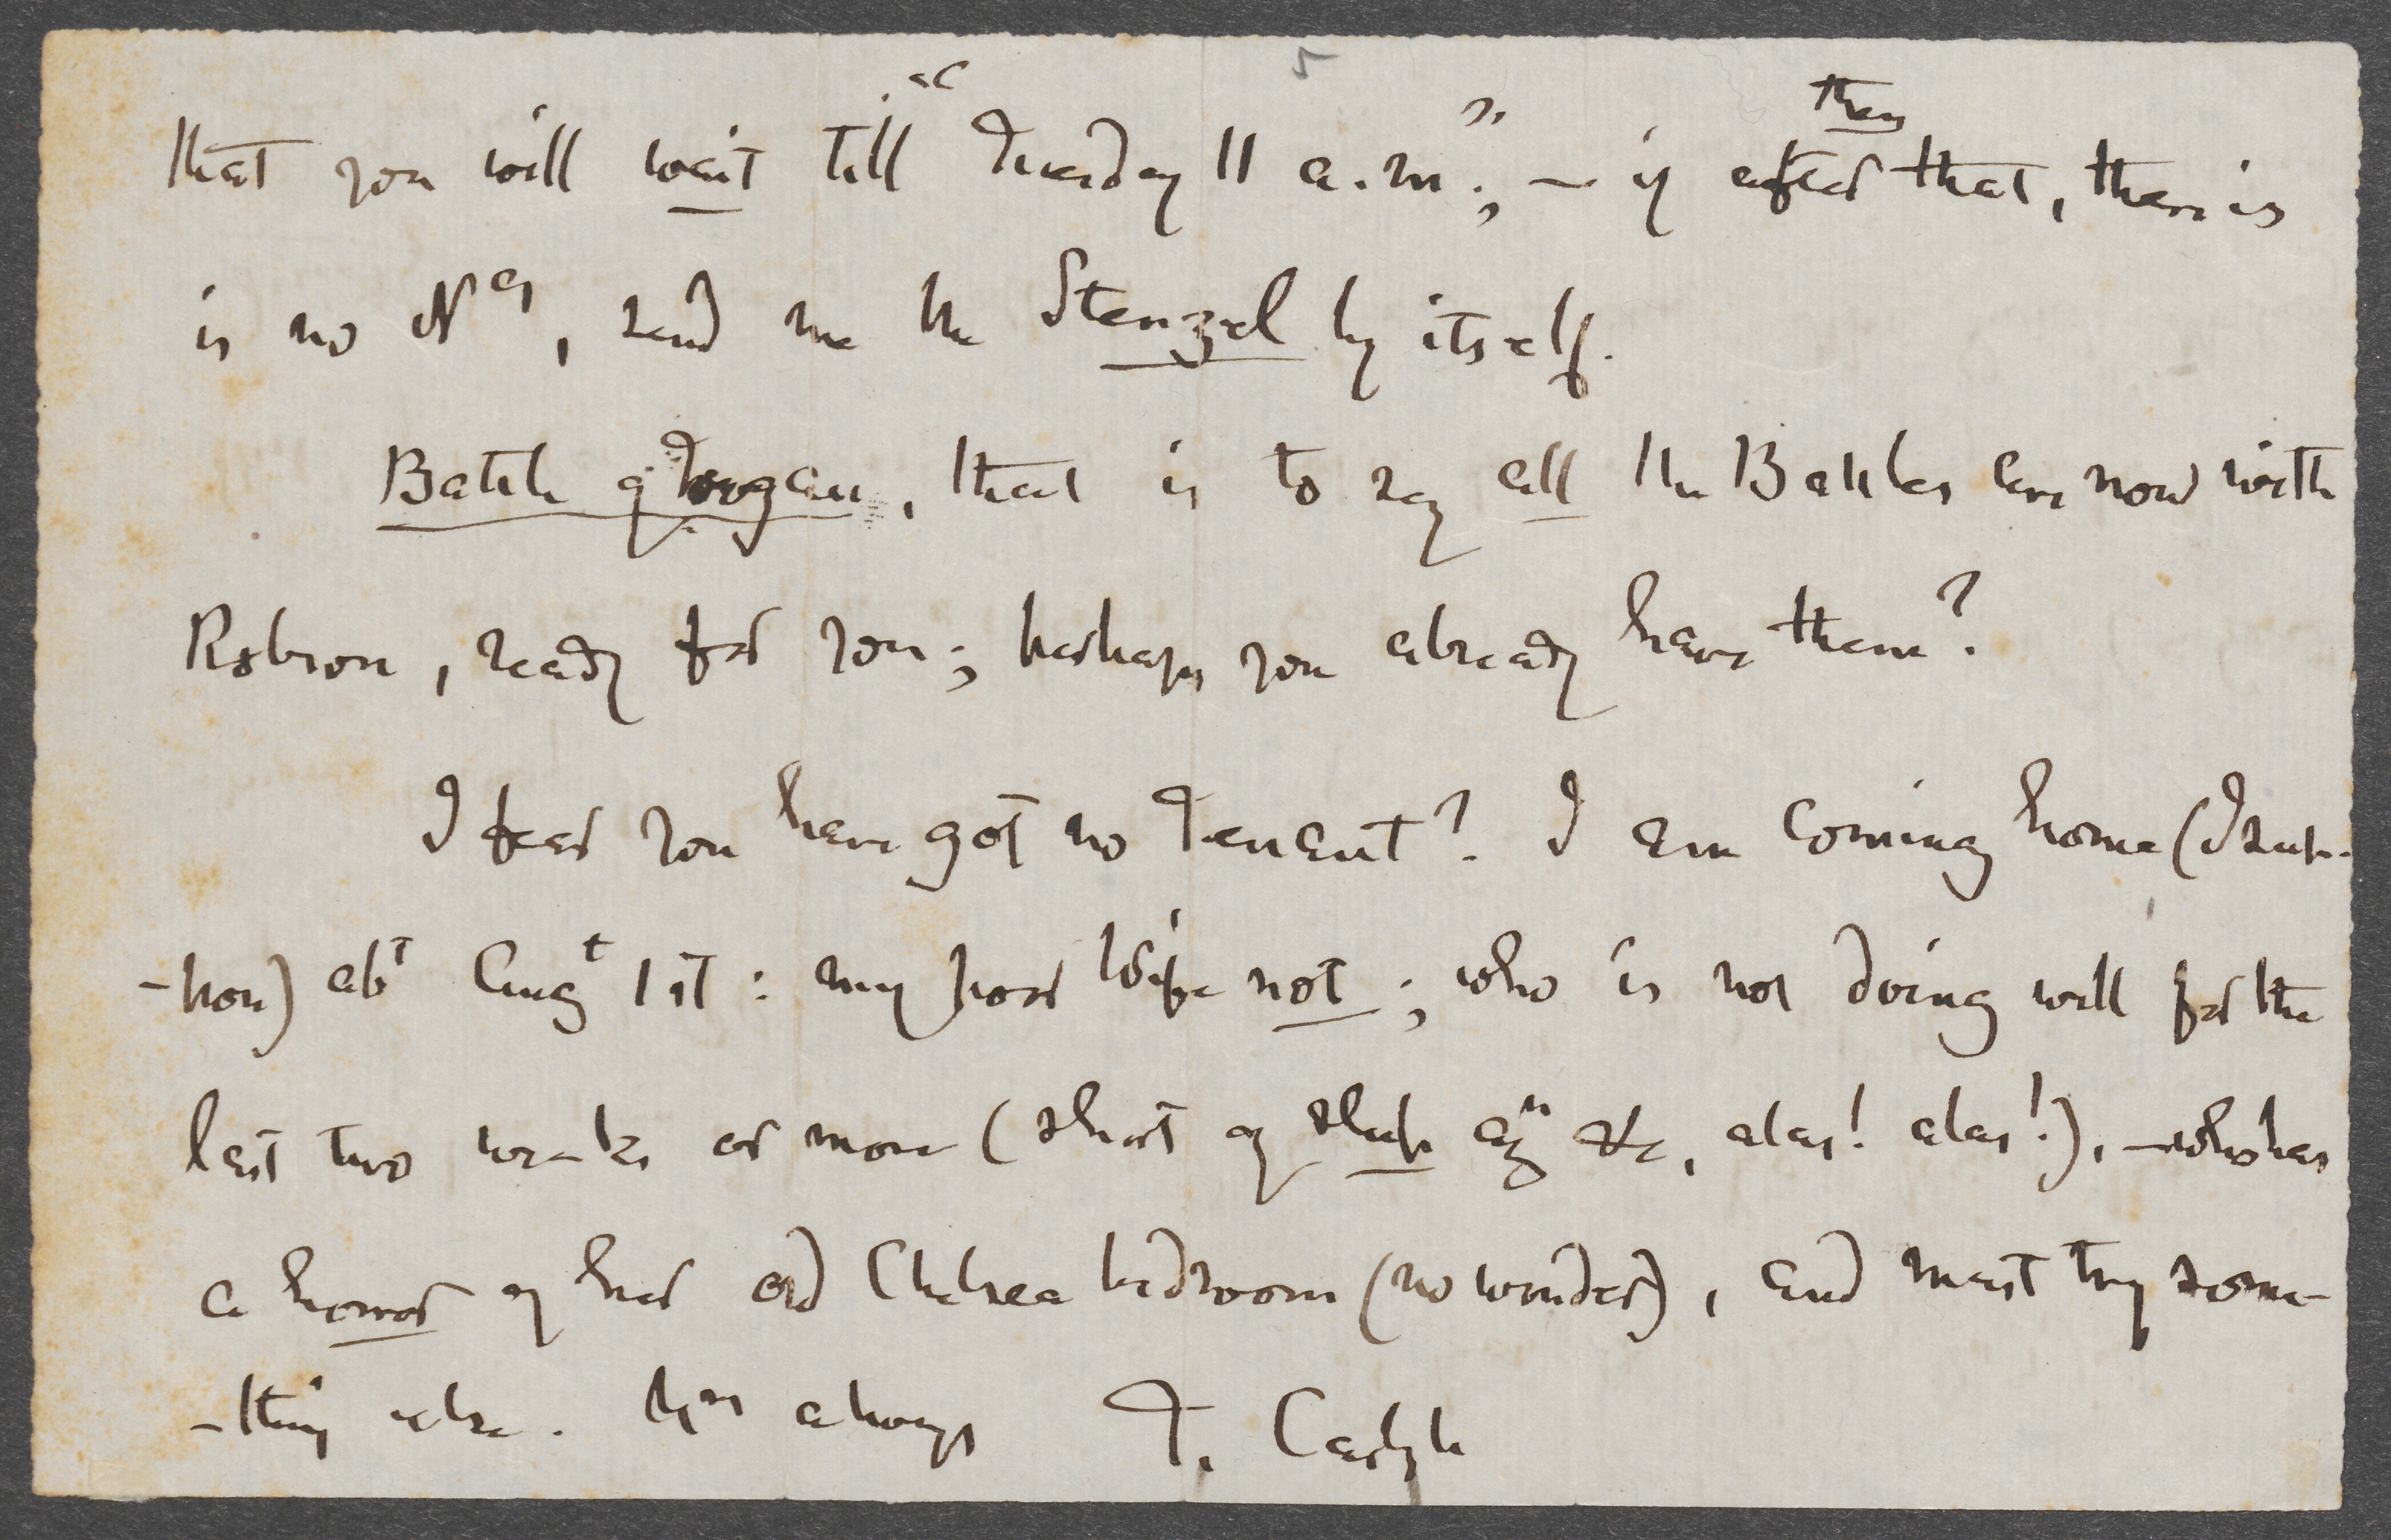 that you will wait till “Tuesday 11 a.m.”; — if after that, there is
then
is no Ns, send me the Stenzel by itself.
Battle of Torgau, that is to say all the Battles are now with
Robson, ready for you; perhaps you already have them?
I fear you have got no Tenant? I am coming home (I sup-
-pose) abt Augt 1st: my poor Wife not; who is not doing well for the
last two weeks or more (short of sleep agn &c, alas! alas!), — who has
a horror of her old Chelsea bedroom (no wonder), and must try some-
-thing else. Yrs always T. Carlyle